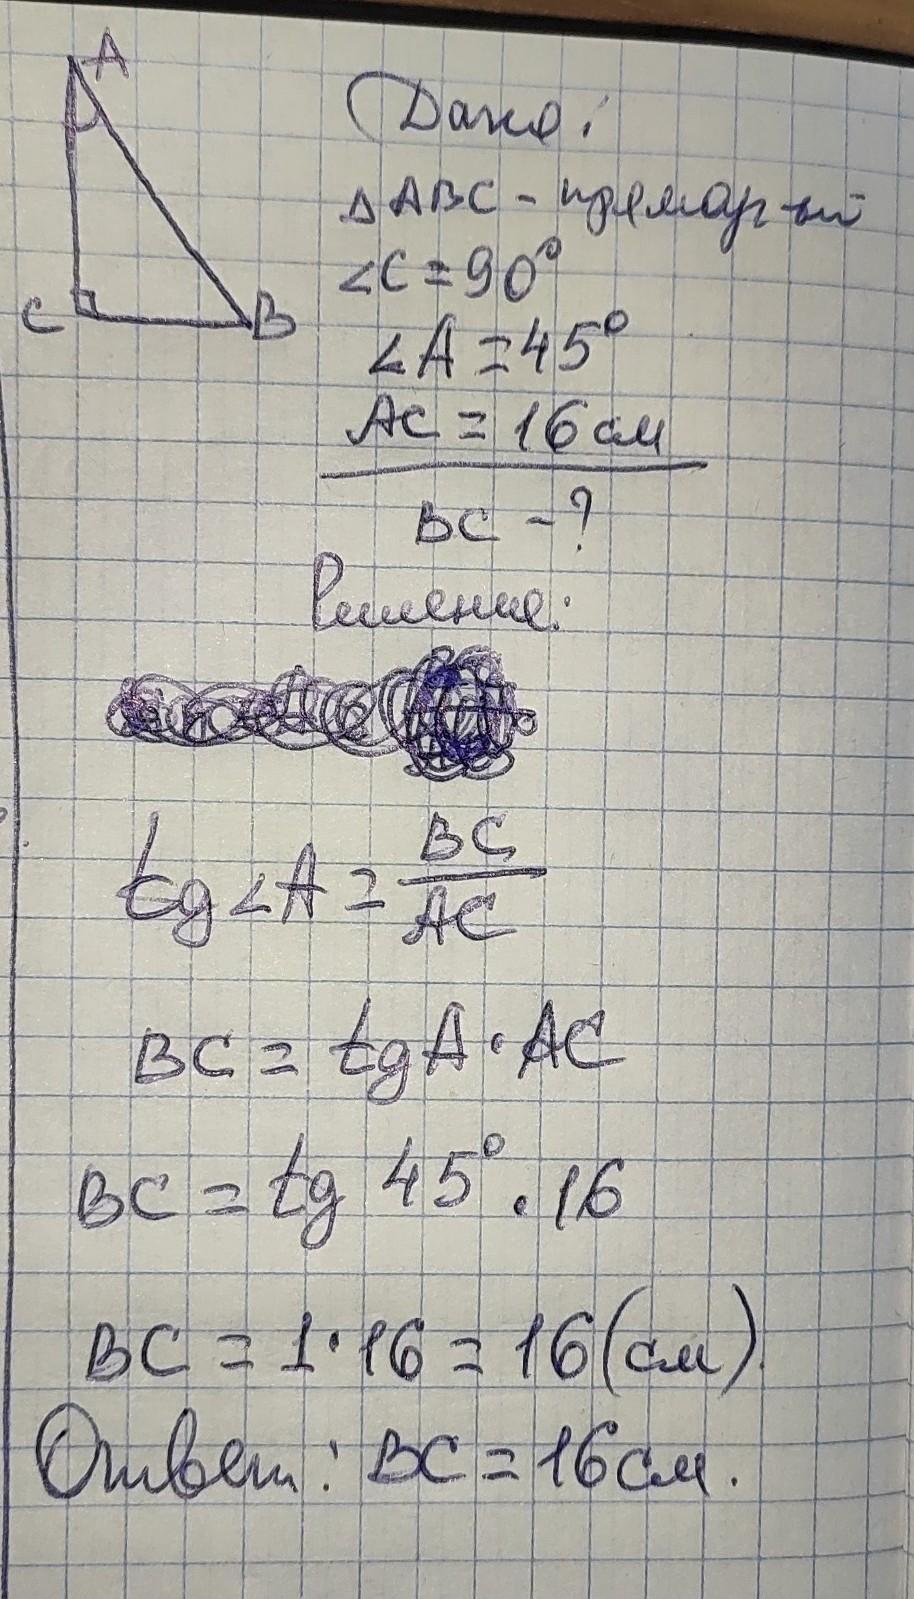 A
C
B
Дано:
△ABC - прямоуг-ый
∠C = 90°
∠A = 45°
AC = 16 см
BC - ?
Решение:
tg∠A = BC/AC
BC = tgA · AC
BC = tg 45° · 16
BC = 1 · 16 = 16 (см).
Ответ: BC = 16 см.